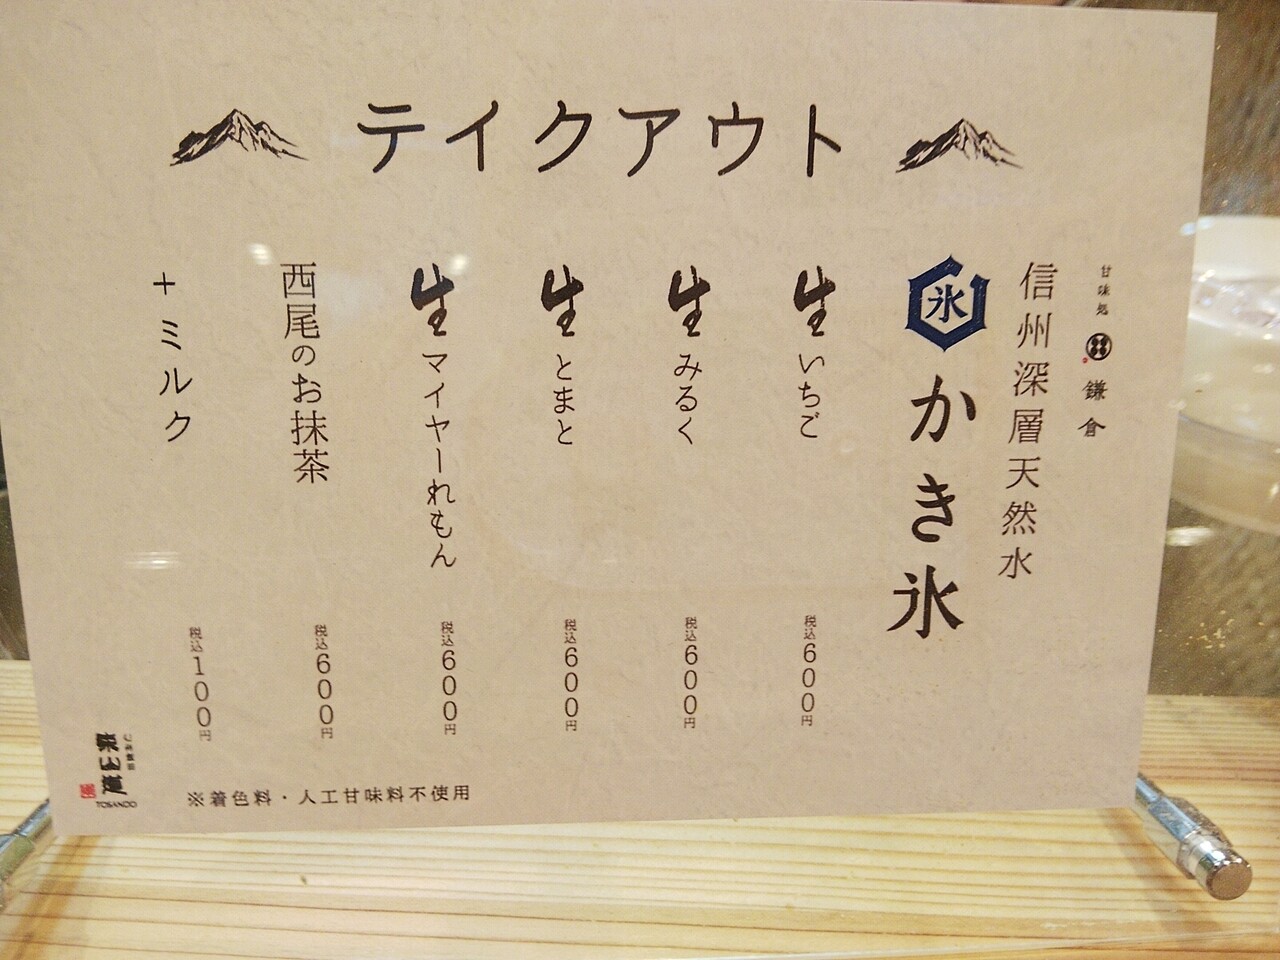 テイクアウト
甘味処
鎌倉
信州深層天然水
氷
かき氷
生いちご 税込600円
生みるく 税込600円
生とまと 税込600円
生マイヤーれもん 税込600円
西尾のお抹茶 税込600円
+ミルク 税込100円
※着色料・人工甘味料不使用
TOSANDO